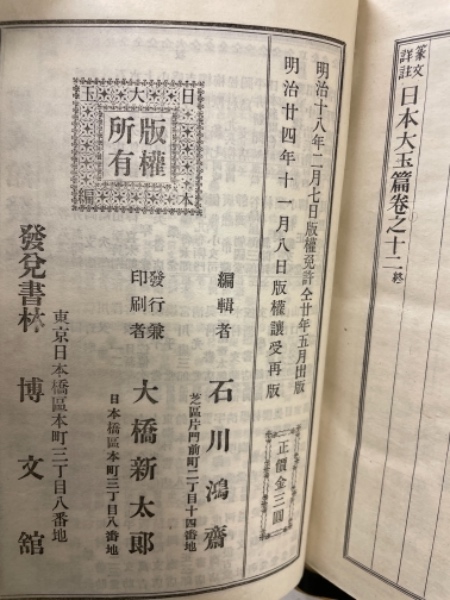 篆文
詳註
日本大玉篇卷之十二終
明治十八年二月七日版權免許仝廿年五月出版
明治廿四年十一月八日版權讓受再版
正價金三圓
編輯者 石川鴻齋
芝區片門前町二丁目十四番地
發行兼
印刷者
大橋新太郎
日本橋區本町三丁目八番地
日本大玉編
版權
所有
東京日本橋區本町三丁目八番地
發兌書林 博文舘